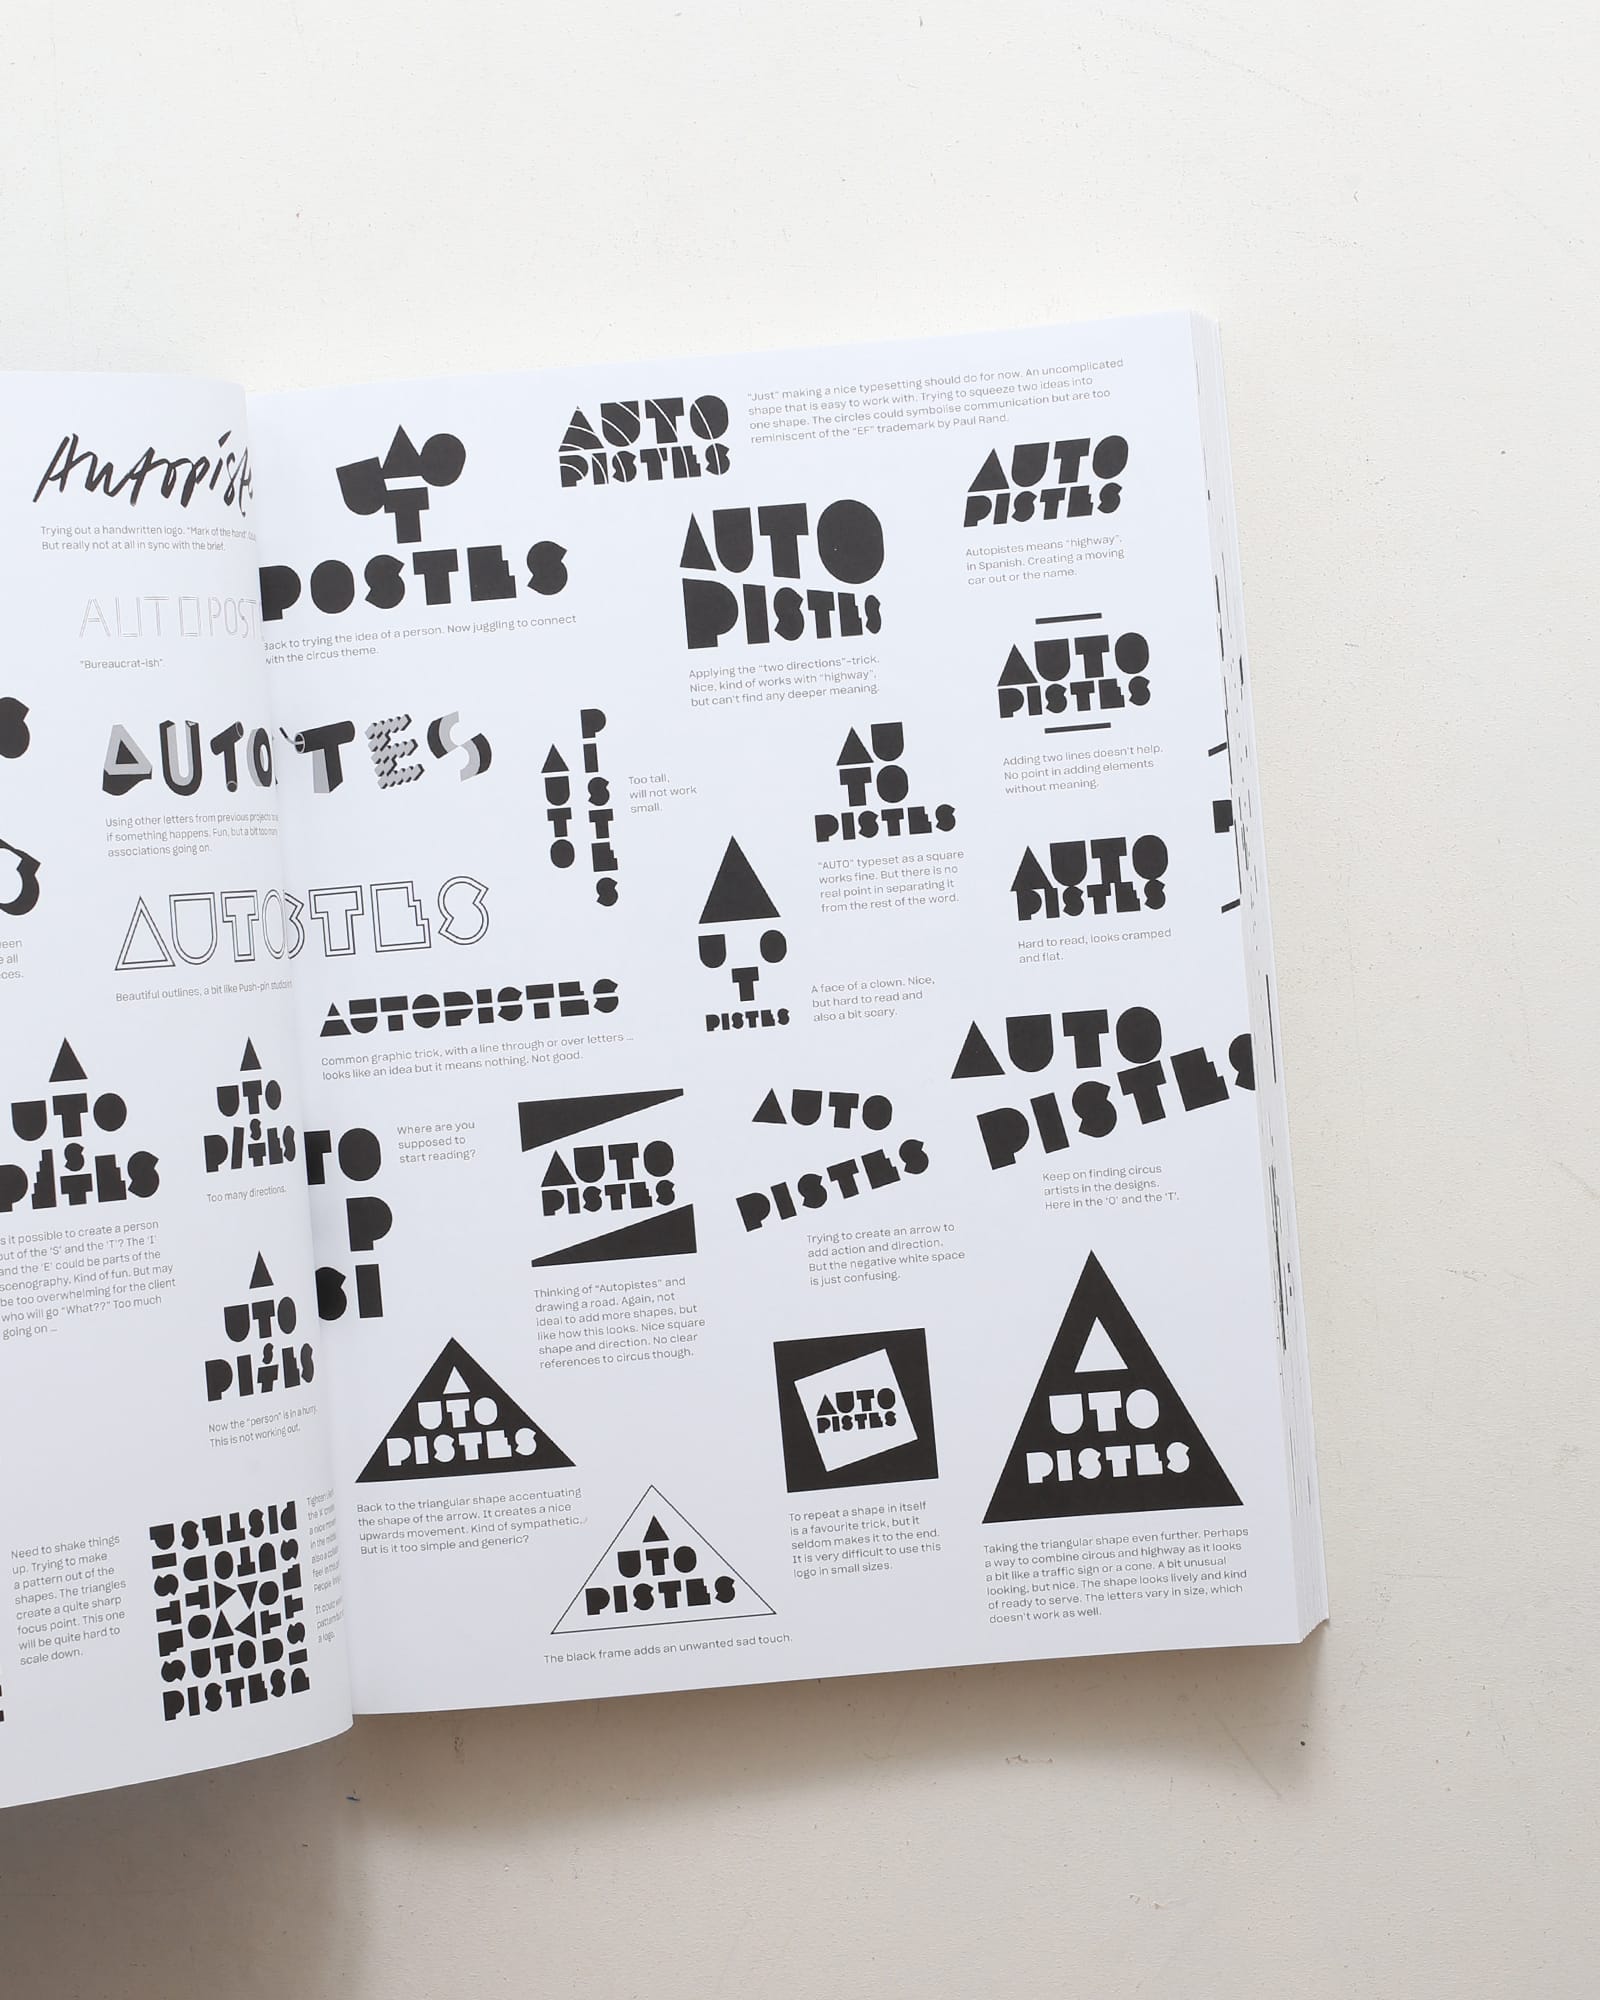 Trying out a handwritten logo. "Mark of the hand".
But really not at all in sync with the brief.
"Bureaucrat-ish".
AUTO
Using other letters from previous projects to
if something happens. Fun, but a bit too many
associations going on.
AUTO
Beautiful outlines, a bit like Push-pin
A
UTO
PISTES
Is it possible to create a person
out of the 'S' and the 'T'? The 'I'
and the 'E' could be parts of the
scenography. Kind of fun. But may
be too overwhelming for the client
who will go "What??" Too much
going on ...
A
UTO
PISTES
Too many directions.
A
UTO
PISTES
Now the "person" is in a hurry.
This is not working out.
Need to shake things
up. Trying to make
a pattern out of the
shapes. The triangles
create a quite sharp
focus point. This one
will be quite hard to
scale down.
PISTES
AUTO
POSTES
Back to trying the idea of a person. Now juggling to connect
with the circus theme.
AUTO
PISTES
"Just" making a nice typesetting should do for now. An uncomplicated
shape that is easy to work with. Trying to squeeze two ideas into
one shape. The circles could symbolise communication but are too
reminiscent of the "EF" trademark by Paul Rand.
AUTO
PISTES
Applying the "two directions"-trick.
Nice, kind of works with "highway",
but can't find any deeper meaning.
AUTO
PISTES
Autopistes means "highway",
in Spanish. Creating a moving
car out or the name.
AUTO
PISTES
Adding two lines doesn't help.
No point in adding elements
without meaning.
TES
AUTO
PISTES
Too tall,
will not work
small.
AU
TO
PISTES
"AUTO" typeset as a square
works fine. But there is no
real point in separating it
from the rest of the word.
AUTO
PISTES
Hard to read, looks cramped
and flat.
STES
AUTOPISTES
Common graphic trick, with a line through or over letters ...
looks like an idea but it means nothing. Not good.
A
U O
T
PISTES
A face of a clown. Nice,
but hard to read and
also a bit scary.
TO
P
SI
Where are you
supposed to
start reading?
AUTO
PISTES
Thinking of "Autopistes" and
drawing a road. Again, not
ideal to add more shapes, but
like how this looks. Nice square
shape and direction. No clear
references to circus though.
AUTO
PISTES
Trying to create an arrow to
add action and direction.
But the negative white space
is just confusing.
AUTO
PISTES
Keep on finding circus
artists in the designs.
Here in the 'O' and the 'T'.
A
UTO
PISTES
Back to the triangular shape accentuating
the shape of the arrow. It creates a nice
upwards movement. Kind of sympathetic.
But is it too simple and generic?
A
UTO
PISTES
The black frame adds an unwanted sad touch.
AUTO
PISTES
To repeat a shape in itself
is a favourite trick, but it
seldom makes it to the end.
It is very difficult to use this
logo in small sizes.
A
UTO
PISTES
Taking the triangular shape even further. Perhaps
a way to combine circus and highway as it looks
a bit like a traffic sign or a cone. A bit unusual
looking, but nice. The shape looks lively and kind
of ready to serve. The letters vary in size, which
doesn't work as well.